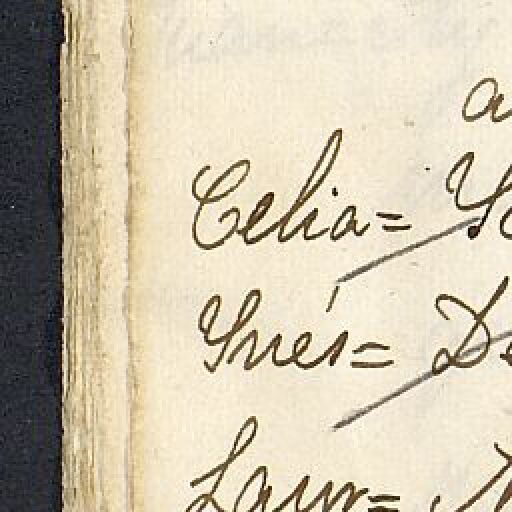 a
Celia= Y
Ynés= De
Laur=